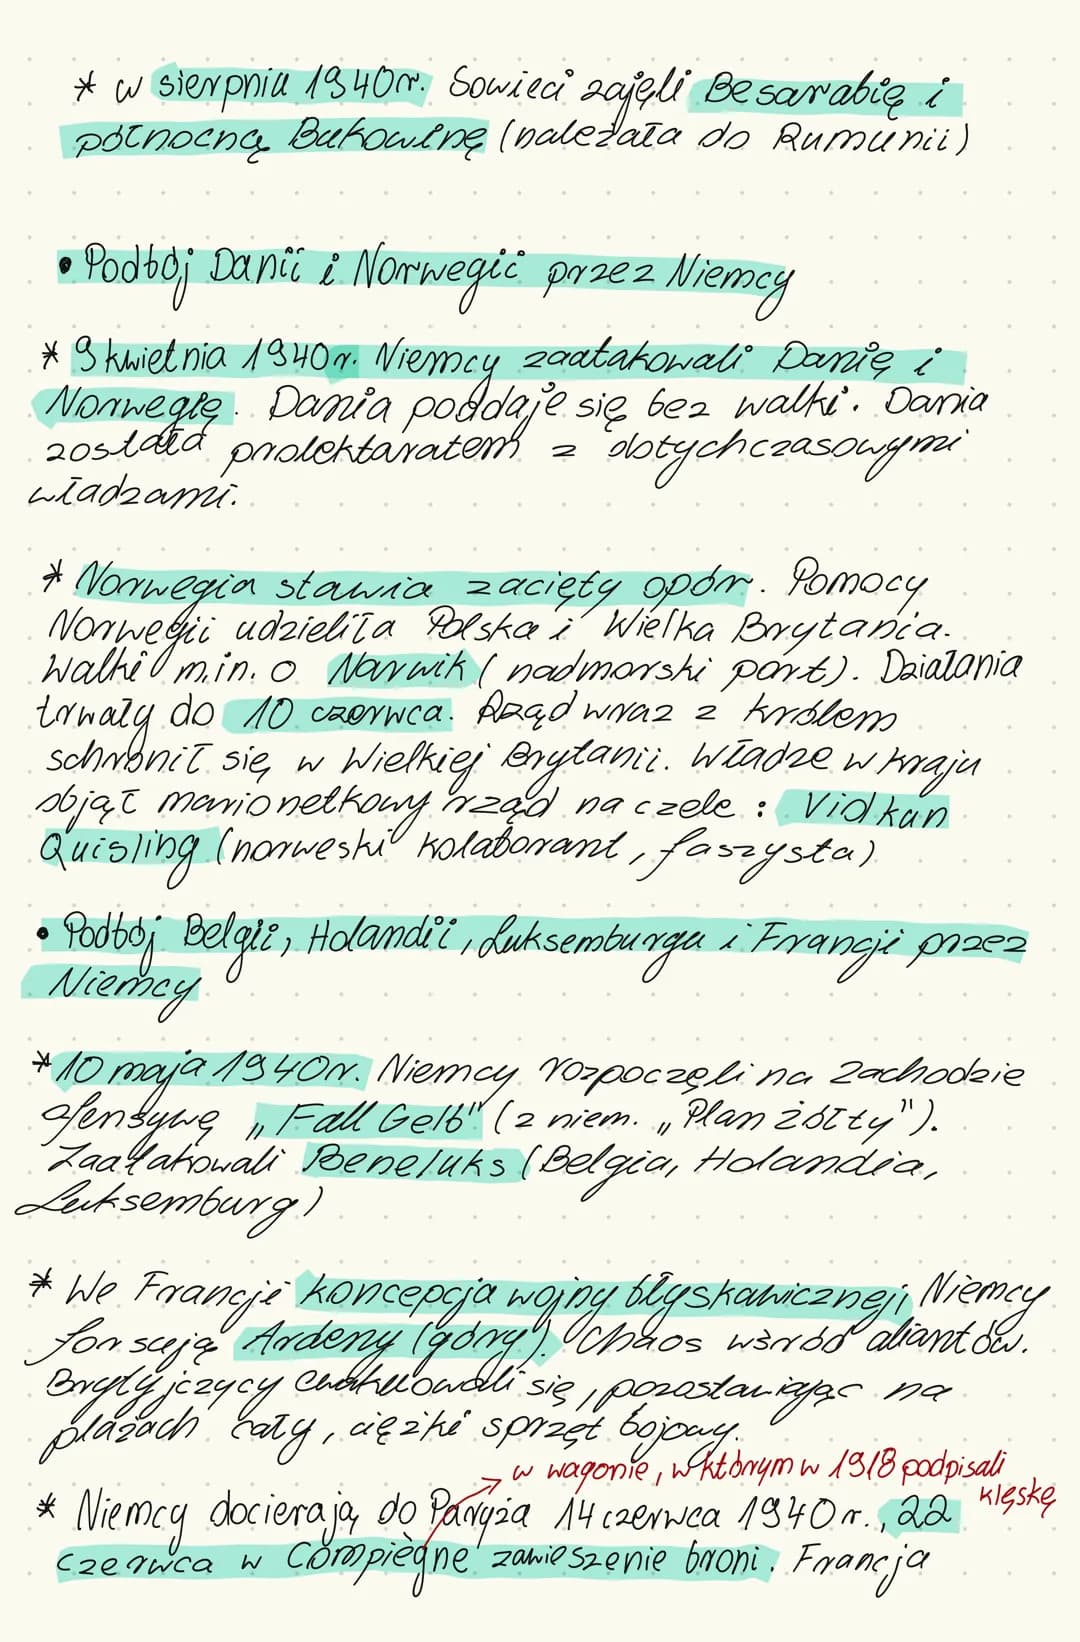 * w sierpniu 1940r. Sowieci zajęli Besarabię i
północną Bukowinę (należała do Rumunii)
• Podbój Danii i Norwegii przez Niemcy
* 9 kwietnia 1940r. Niemcy zaatakowali Danię i
Norwegię. Dania poddaje się bez walki. Dania
została protektaratem z dotychczasowymi
władzami.
* Norwegia stawia zacięty opór. Pomocy
Norwegii udzieliła Polska i Wielka Brytania.
Walki m.in. o Narwik (nadmorski port). Działania
trwały do 10 czerwca. Rząd wraz z królem
schronił się w Wielkiej Brytanii. Władze w kraju
objął marionetkowy rząd na czele : Vidkun
Quisling (norweski kolaborant, faszysta)
• Podbój Belgii, Holandii, Luksemburga i Francji przez
Niemcy
* 10 maja 1940r. Niemcy rozpoczęli na zachodzie
ofensywę „Fall Gelb" (z niem. „Plan żółty").
Zaatakowali Beneluks (Belgia, Holandia,
Luksemburg)
* We Francji koncepcja wojny błyskawicznej, Niemcy
forsują Ardeny (góry). Chaos wśród aliantów.
Brytyjczycy ewakuowali się, pozostawiając na
plażach cały, ciężki sprzęt bojowy.
w wagonie, w którym w 1918 podpisali
klęskę
* Niemcy docierają do Paryża 14 czerwca 1940r., 22
czerwca w Compiègne zawieszenie broni. Francja